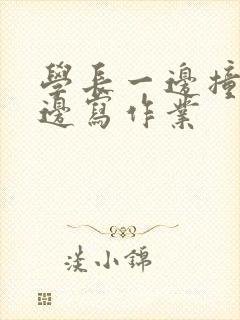 學長一邊撞
邊寫作業
淡小錦